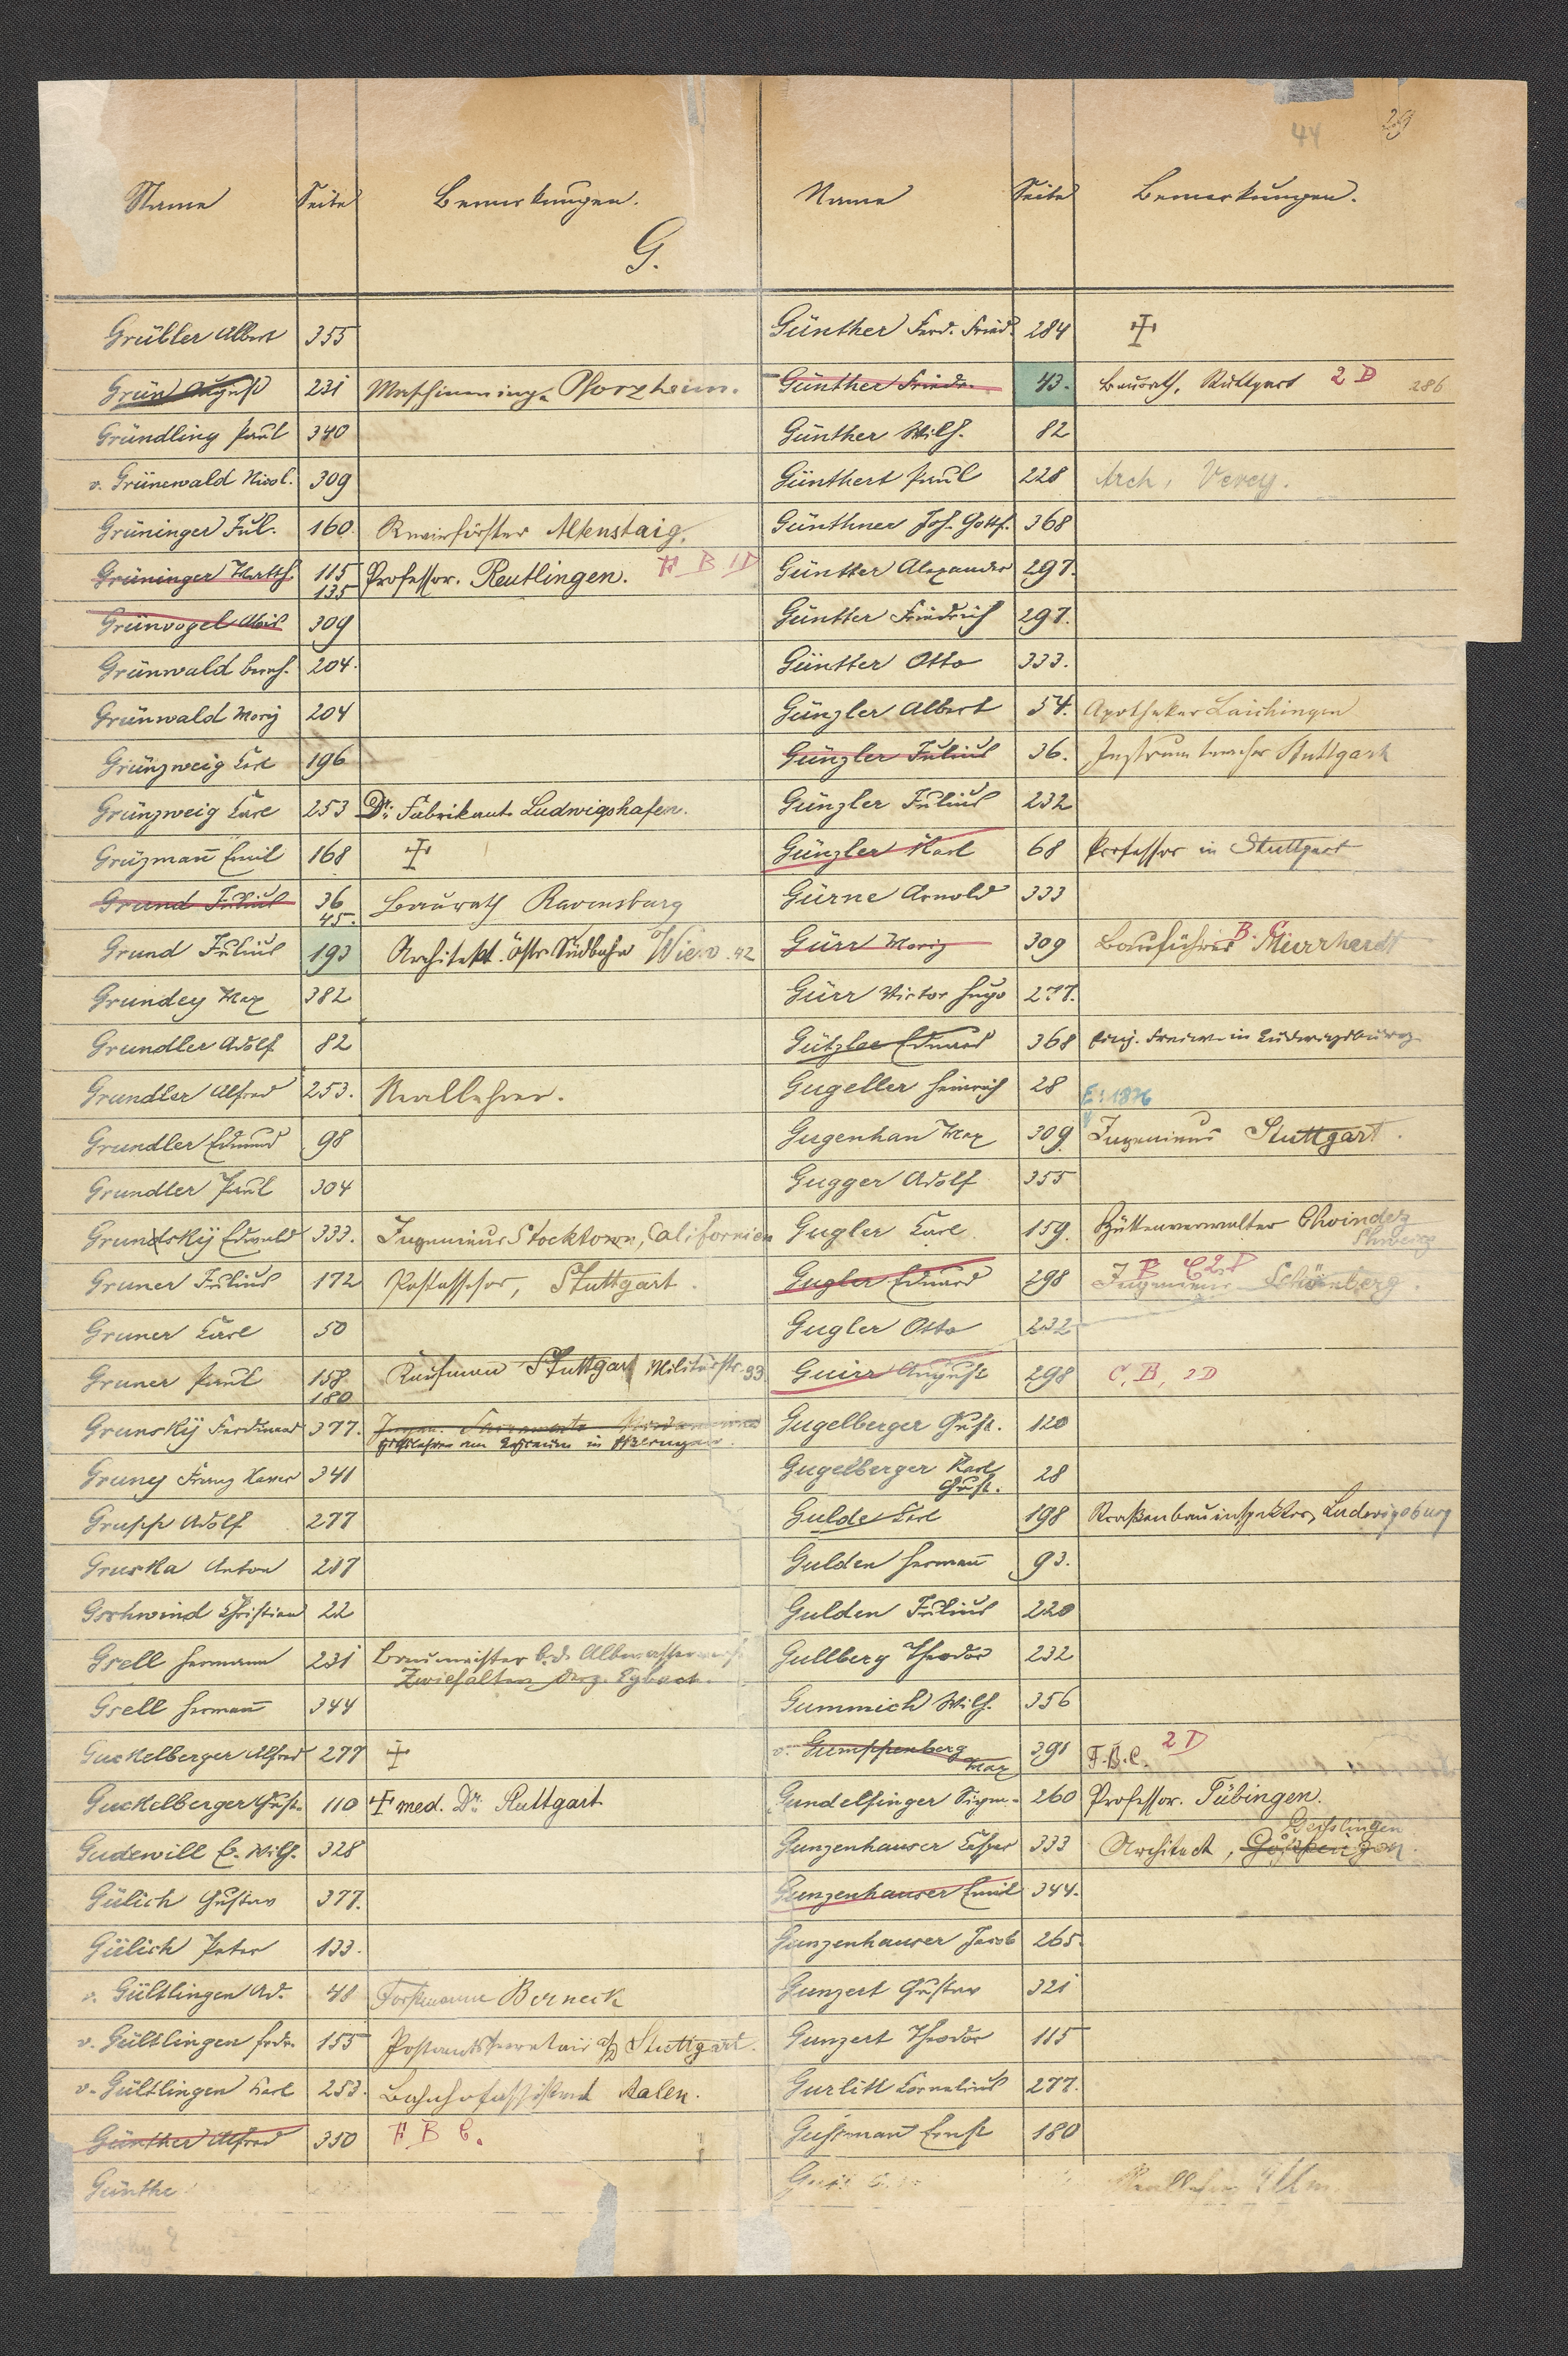 44 29
Name Seite Bemerkungen. Name Seite Bemerkungen.
G.
Grübler Albert 355
Grün August 231 Maschineninge. Pforzheim.
Gründling Paul 340
v. Grünewald Nicol. 309
Grüninger Jul. 160. Revierförster Altenstaig.
Grüninger Matth. 115 Professor. Reutlingen. F B 1D
135
Grünvogel 309
Grünwald Bernh. 204.
Grünwald Moriz 204
Grünzweig Carl 196
Grünzweig Carl 253 Dr. Fabrikant Ludwigshafen.
Grüzmañ Emil 168 ✝
Grund Julius 36 Baurath Ravensburg
45.
Grund Julius 193 Architekt. östr. Südbahn Wien 42
Grundey Max 382
Grundler Adolf 82
Grundler Alfred 253. Reallehrer.
Grundler Edmund 98
Grundler Paul 304
Grunsky Ewald 333. Ingenieur Stocktown, Californien
Gruner Julius 172 Postassessor, Stuttgart.
Gruner Carl 50
Gruner Paul 158 Kaufmann Stuttgart Militärstr. 93
180
Grunsky Ferdinand 377.
Gruny Franz Xaver 341
Grupp Adolf 277
Gruska Anton 217
Gschwind Christian 22
Gsell Hermann 231 Baumeister b. d. Albwasser
Zwiefalten derz. Eybach.
Gsell Hermañ 344
Guckelberger Alfred 277 ✝
Guckelberger Gust. 110 ✝ med. Dr. Stuttgart
Gudewill E. Wilh. 328
Gülich Gustav 377.
Gülich Peter 133.
v. Gültlingen Ad. 48 Forstmann Berneck
v. Gültlingen Fedr. 155 Postamtssecretair a/D Stuttgart.
v. Gültlingen Karl 253. Bahnhofassistent Aalen.
Günther Alfred 350 F B C.
Günthe
Günther Ferd. Fried. 284 ✝
Günther Friedr. 43. Baurath, Stuttgart 2 D 286
Günther Wilh. 82
Günthert Paul 228 Arch, Vevey.
Günthner Joh. Gottf. 368
Güntter Alexander 297.
Güntter Friedrich 297.
Güntter Otto 333.
Günzler Albert 54. Apotheker Laichingen
Günzler Julius 36. Instrumtmacher Stuttgart
Günzler Julius 232
Günzler Karl 68 Professor in Stuttgart
Gürne Arnold 333
Gürr Moriz 309 Bauführer B. C. Murrhardt
Gürr Victor Hugo 277.
Gützler Eduard 368 Einj. Freiw. in Ludwigsburg
Gugeller Heinrich 28
E: 1876
Gugenhan Max 309. Ingenieur Stuttgart.
Gugger Adolf 355
Gugler Carl 159. Hüttenverwalter Choindez
Schweiz
Gugler Eduard 298 B C 2D Ingenieur Schömberg.
Gugler Otto 232
Guirr August 298 C, B, 2D
Gugelberger Gust. 120
Gugelberger Karl 28
Gust.
Gulde Carl 198 Straßenbauinspektor, Ludwigsburg
Gulden Hermañ 93.
Gulden Julius 220
Gullberg Theodor 232
Gummich Wilh. 356
v. Gumppenberg 391 F. B. C. 2 D
Max
Gundelfinger Sigm. 260 Professor. Tübingen.
Gunzenhauser 333 Architect, Göppingen
Deisslingen
Gunzenhauser Emil 344.
Gunzenhauser Jacob 265.
Gunzert Gustav 321
Gunzert Theodor 115
Gurlitt Cornelius 277.
Gussmañ Ernst 180
Reallehrer Ulm.